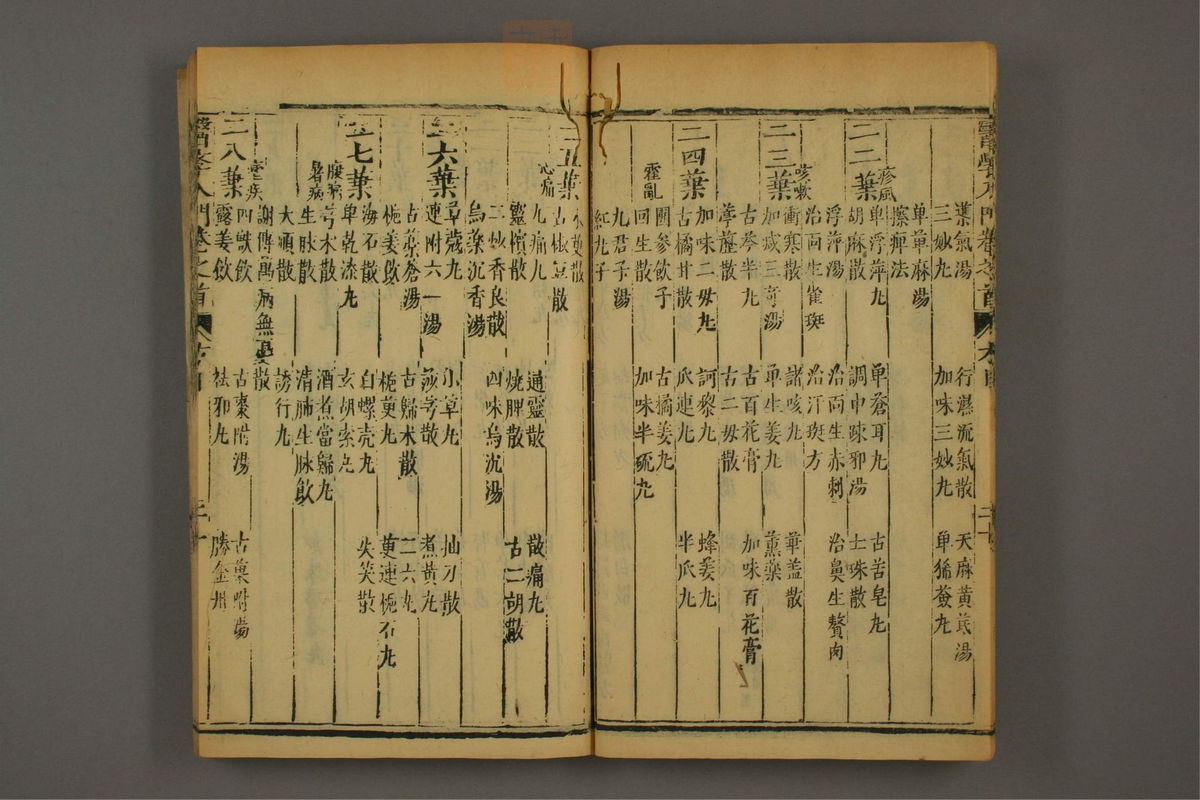 醫學入門卷之首
順氣湯　行濕流氣散　天麻黃芪湯
三妙丸　加味三妙丸　單豨薟丸
單萆麻湯
擦癧法
二二葉　疹風
單浮萍丸　單蒼耳丸　古苦皂丸
胡麻散　調中疎邪湯　士珠散
浮萍湯　治面生赤刺　治鼻生贅肉
治面生雀斑　治汗斑方
二三葉　咳嗽
衝寒散　諸咳丸　華蓋散
加減三奇湯　單生姜丸　薰藥
古芩半丸　古百花膏　加味百花膏
葶藶散　古二母散
二四葉
加味二母丸　訶黎丸　蜂姜丸
古橘甘散　瓜連丸　半瓜丸
團參飲子　古橘姜丸
霍亂
回生散　加味半硫丸
九君子湯
紅丸子
二五葉　心痛
古椒豆散
九痛丸　通靈散　散痛丸
靈檳散　燒脾散　古二胡散
二炒香良散　四味烏沉湯
烏藥沉香湯
二六葉
草歲丸　小草丸　抽刀散
連附六一湯　莎芎散　煮黃丸
古藥蒼湯　古歸术散　二六丸
梔姜飲　梔萸丸　萸連梔石丸
海石散　白螺壳丸　失笑散
二七葉
單乾漆丸　玄胡索丸
腹痛
芎术散　酒煮當歸丸
暑病
生脉散　清肺生脉飲
大順散　誘行丸
瘧疾
謝傳寓病無憂散
二八葉
四獸飲　古棗附湯　古菓附湯
露姜飲　祛邪丸　勝金丹
醫學入門卷之首
二十一